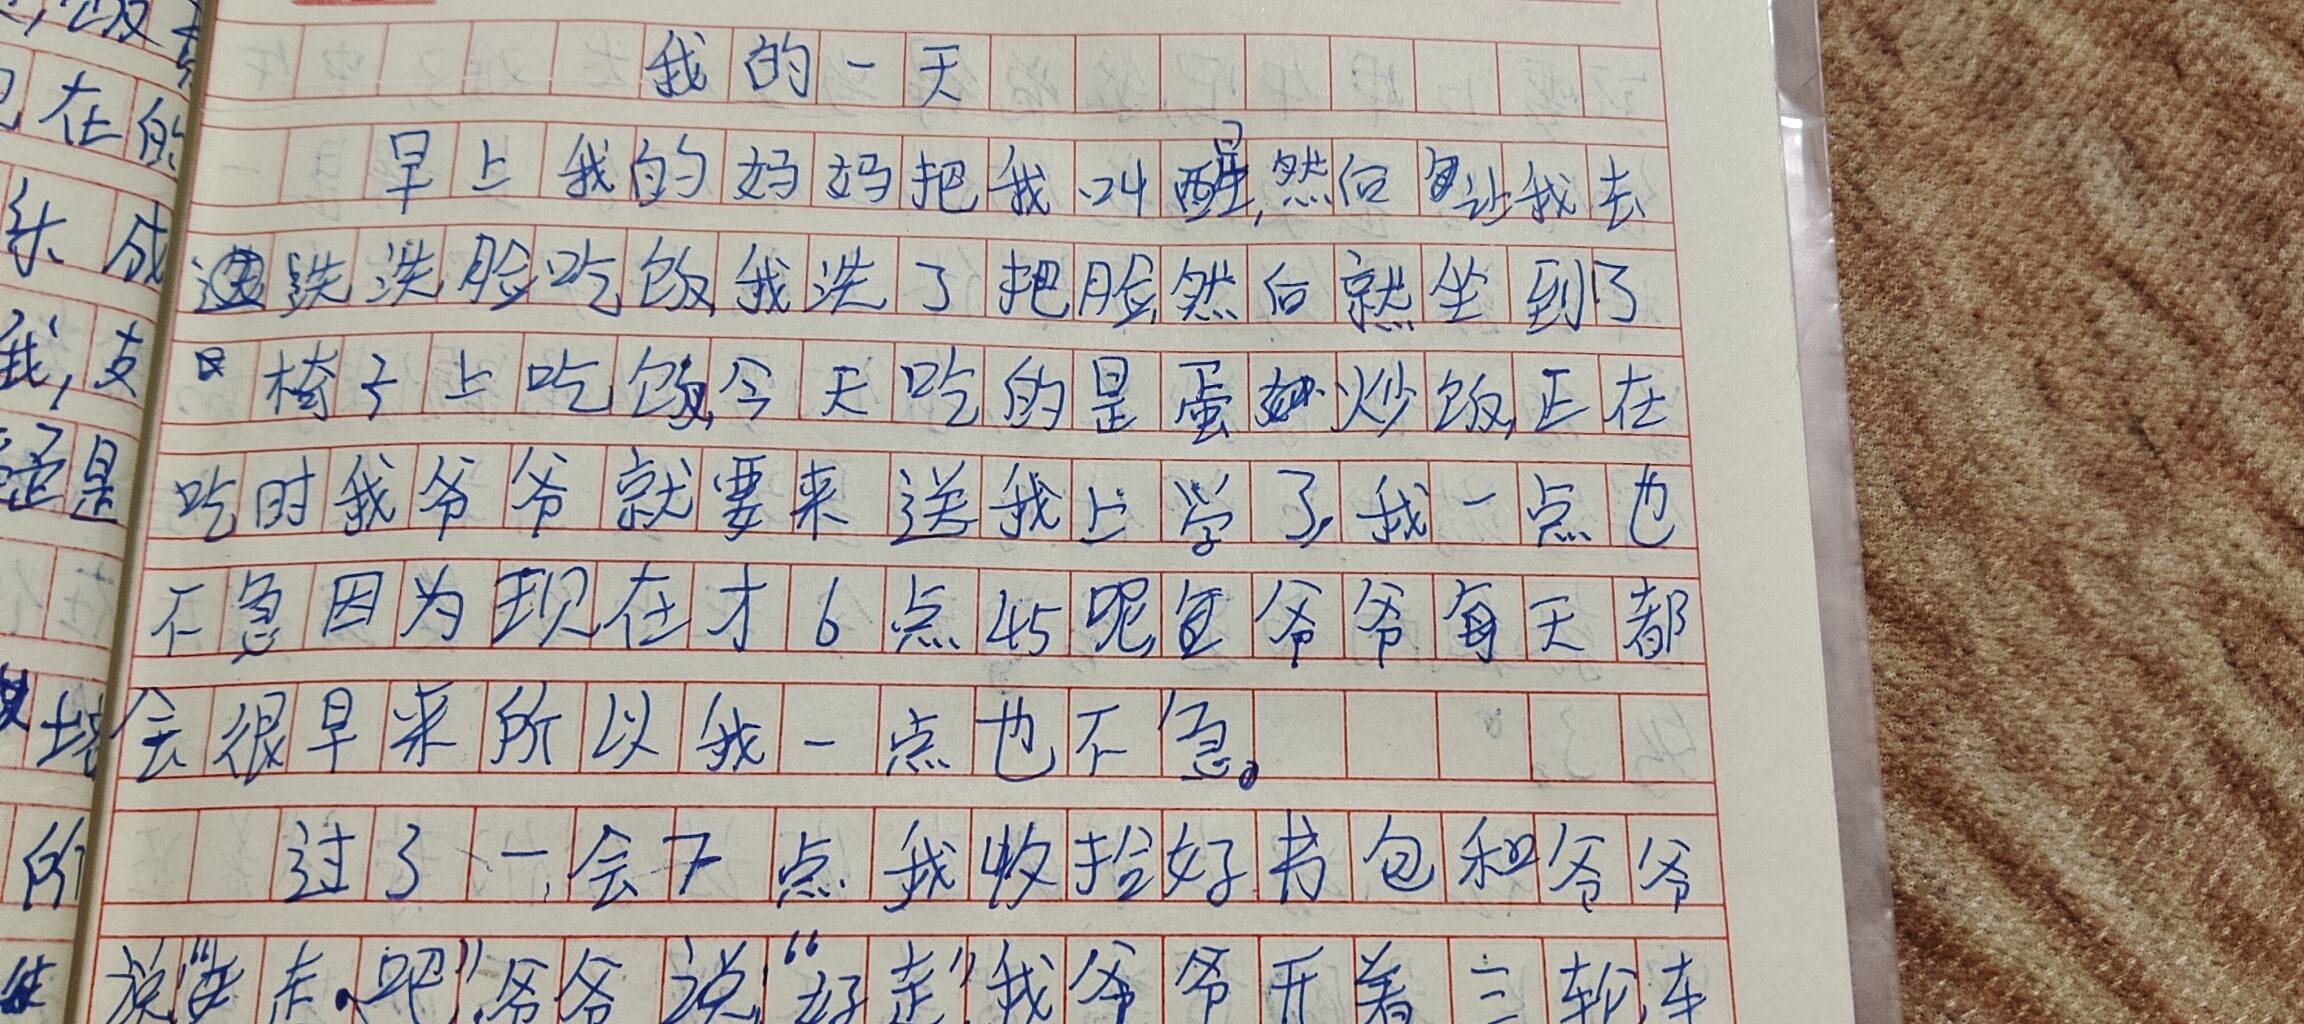 我的一天
早上我的妈妈把我叫醒,然后让我去
洗洗脸吃饭,我洗了把脸,然后就坐到了
椅子上吃饭,今天吃的是蛋炒饭,正在
吃时我爷爷就要来送我上学了,我一点也
不急因为现在才6点45呢,爷爷每天都
会很早来所以我一点也不急。
过了一会7点我收拾好书包和爷爷
说“走吧”爷爷说“好走”我爷爷开着三轮车
在的
乐成
我,支
是
所